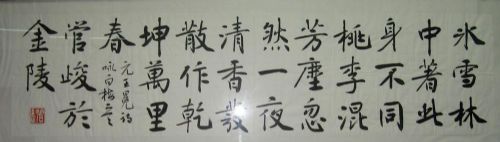 冰雪林
中著此
身不同
桃李混
芳塵忽
然一夜
清香發
散作乾
坤萬里
春
元王冕詩
咏白梅
管峻於
金陵